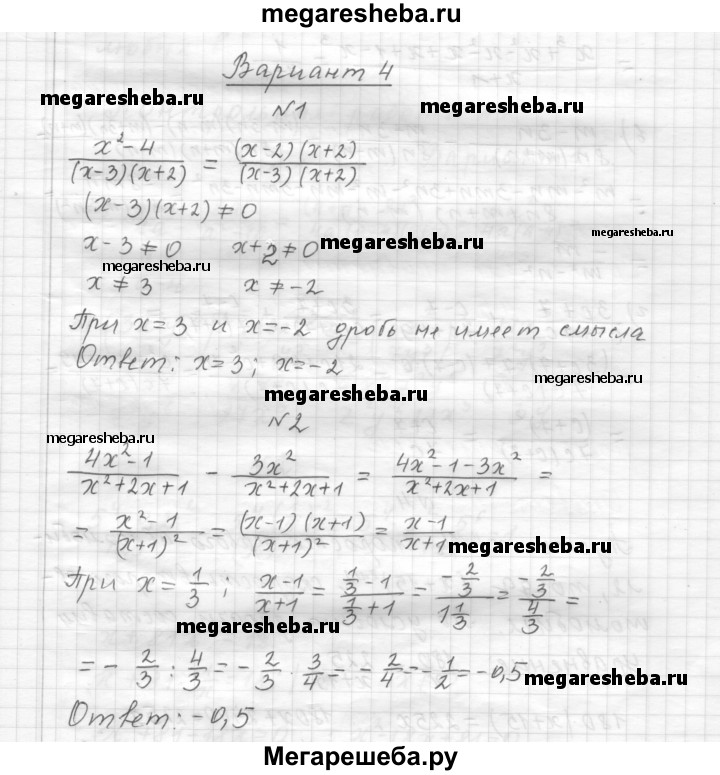 megaresheba.ru
Вариант 4
megaresheba.ru
megaresheba.ru
№1
x²-4/(x-3)(x+2) = (x-2)(x+2)/(x-3)(x+2)
(x-3)(x+2) ≠ 0
megaresheba.ru
x-3 ≠ 0 x+2 ≠ 0 megaresheba.ru
megaresheba.ru
x ≠ 3 x ≠ -2
При x=3 и x=-2 дробь не имеет смысла
Ответ: x=3; x=-2
megaresheba.ru
megaresheba.ru
№2
megaresheba.ru
4x²-1/x²+2x+1 - 3x²/x²+2x+1 = 4x²-1-3x²/x²+2x+1 =
= x²-1/(x+1)² = (x-1)(x+1)/(x+1)² = x-1/x+1
megaresheba.ru
При x = 1/3; x-1/x+1 = 1/3-1/1/3+1 = -2/3/1 1/3 = -2/3/4/3 =
megaresheba.ru
= - 2/3 : 4/3 = - 2/3 · 3/4 = - 2/4 = - 1/2 = -0,5
megaresheba.ru
Ответ: -0,5
Мегарешеба.ру